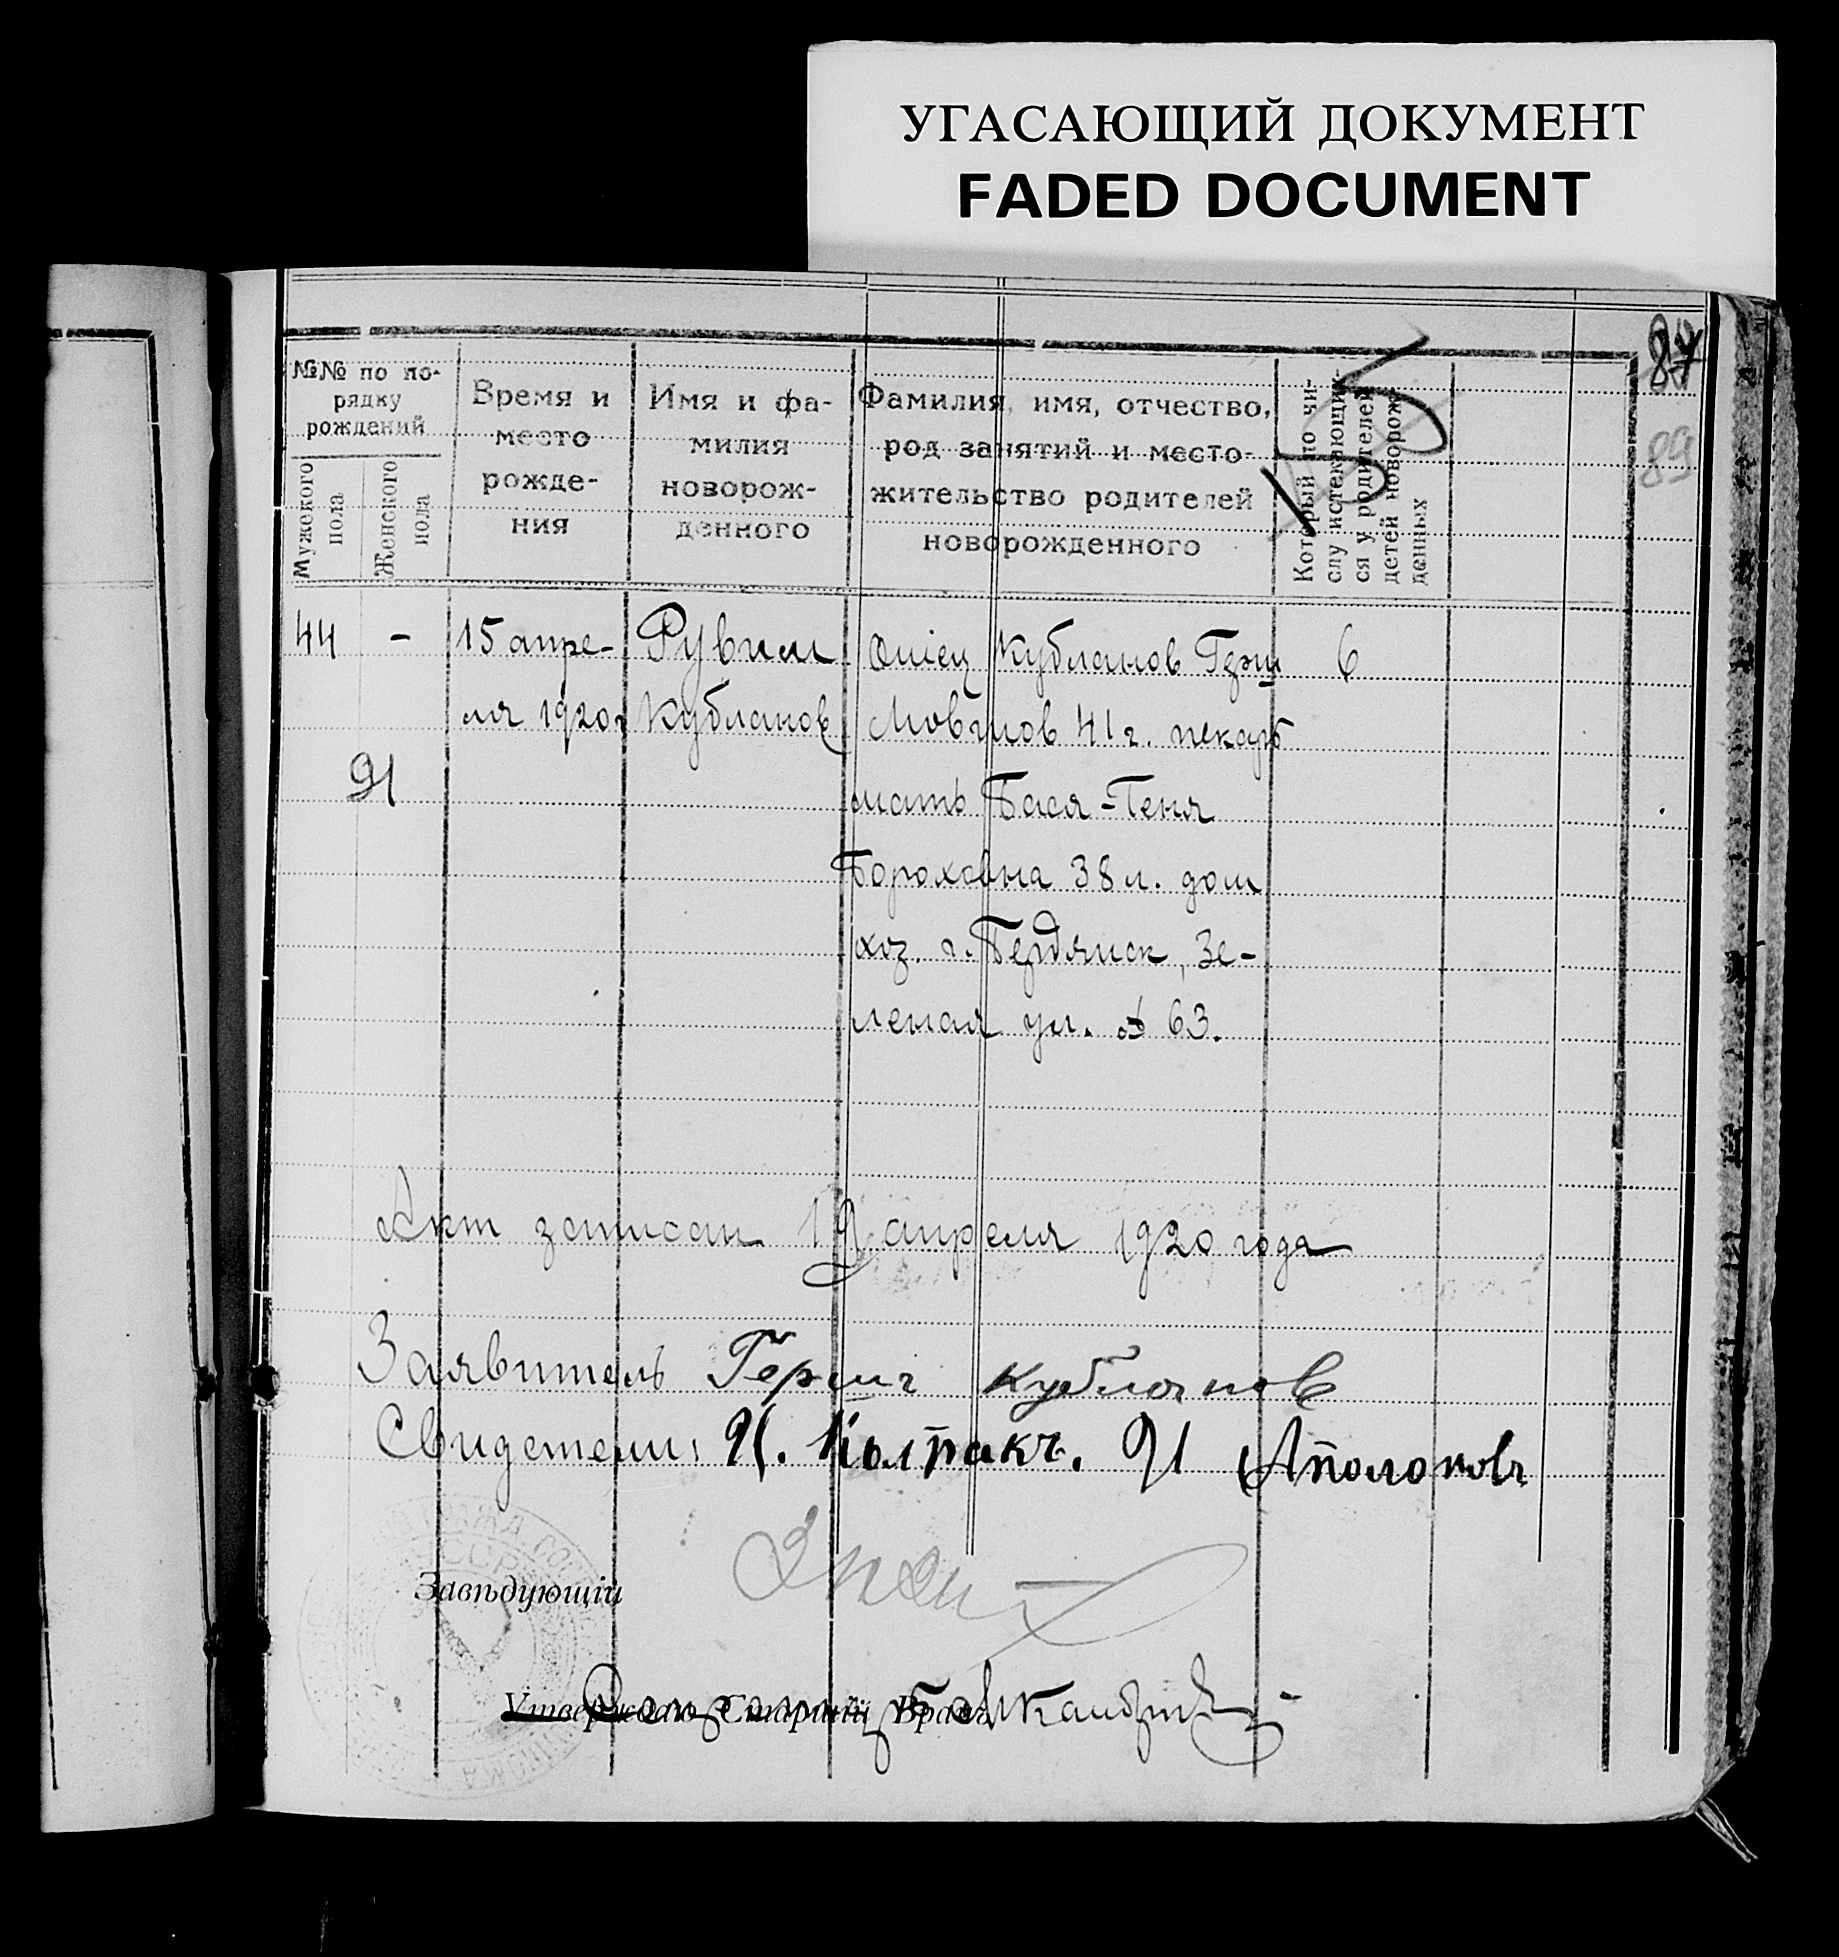 УГАСАЮЩИЙ ДОКУМЕНТ
FADED DOCUMENT
87
89
№№ по по-
рядку
рождений
Мужского
пола
Женского
пола
Время и
место
рожде-
ния
Имя и фа-
милия
новорож-
денного
Фамилия, имя, отчество,
род занятий и место-
жительство родителей
новорожденного
Который по чи-
слу истекающих-
ся у родителей
детей новорож-
денных
44 - 15 апре- Рувим Отец Кубланов Гэрш 6
ля 1920г Кубланов Мовшов 41 г. пекарь
91
мать Бася-Геня
Бороховна 38 л. дом
хоз. г. Бердянск, Зе-
леная ул. № 63.
Акт записан 19 апреля 1920 года
Заявитель Герш Кубланов
Свидетели:
Завѣдующій
Утверждаю Старшій Врачъ